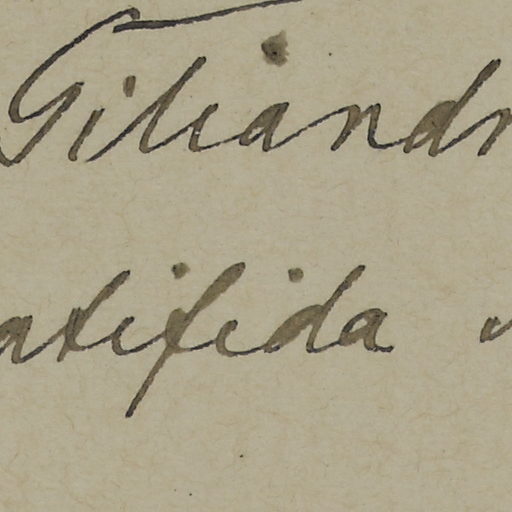 Giliandr
atifida